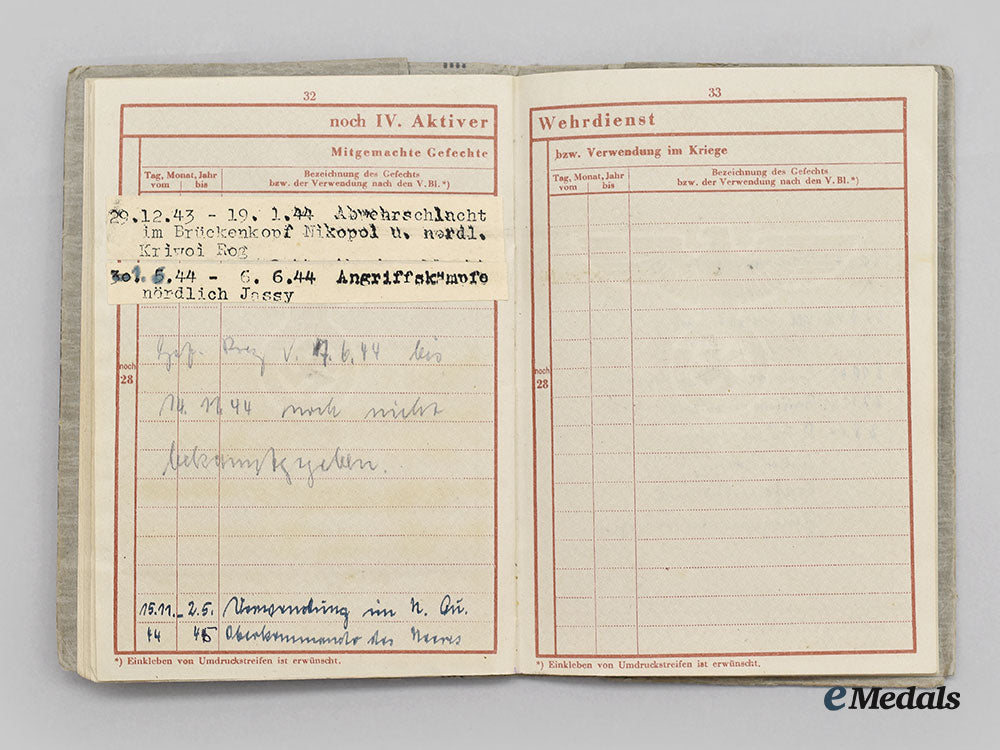 32
noch IV. Aktiver
Mitgemachte Gefechte
Tag, Monat, Jahr
vom bis
Bezeichnung des Gefechts
bzw. der Verwendung nach den V.Bl.*)
29.12.43 - 19. 1.44 Abwehrschlacht
im Brückenkopf Nikopol u. nördl.
Krivoi Rog
5.44 - 6. 6.44 Angriffskämpfe
nördlich Jassy
v. 7.6.44 bis
noch
28
14.11.44 noch nicht
bekanntgegeben.
15.11. - 2.5. Verwendung im H. Qu.
44 45 Oberkommando des Heeres
*) Einkleben von Umdruckstreifen ist erwünscht.
33
Wehrdienst
bzw. Verwendung im Kriege
Tag, Monat, Jahr
vom bis
Bezeichnung des Gefechts
bzw. der Verwendung nach den V.Bl.*)
noch
28
*) Einkleben von Umdruckstreifen ist erwünscht.
eMedals